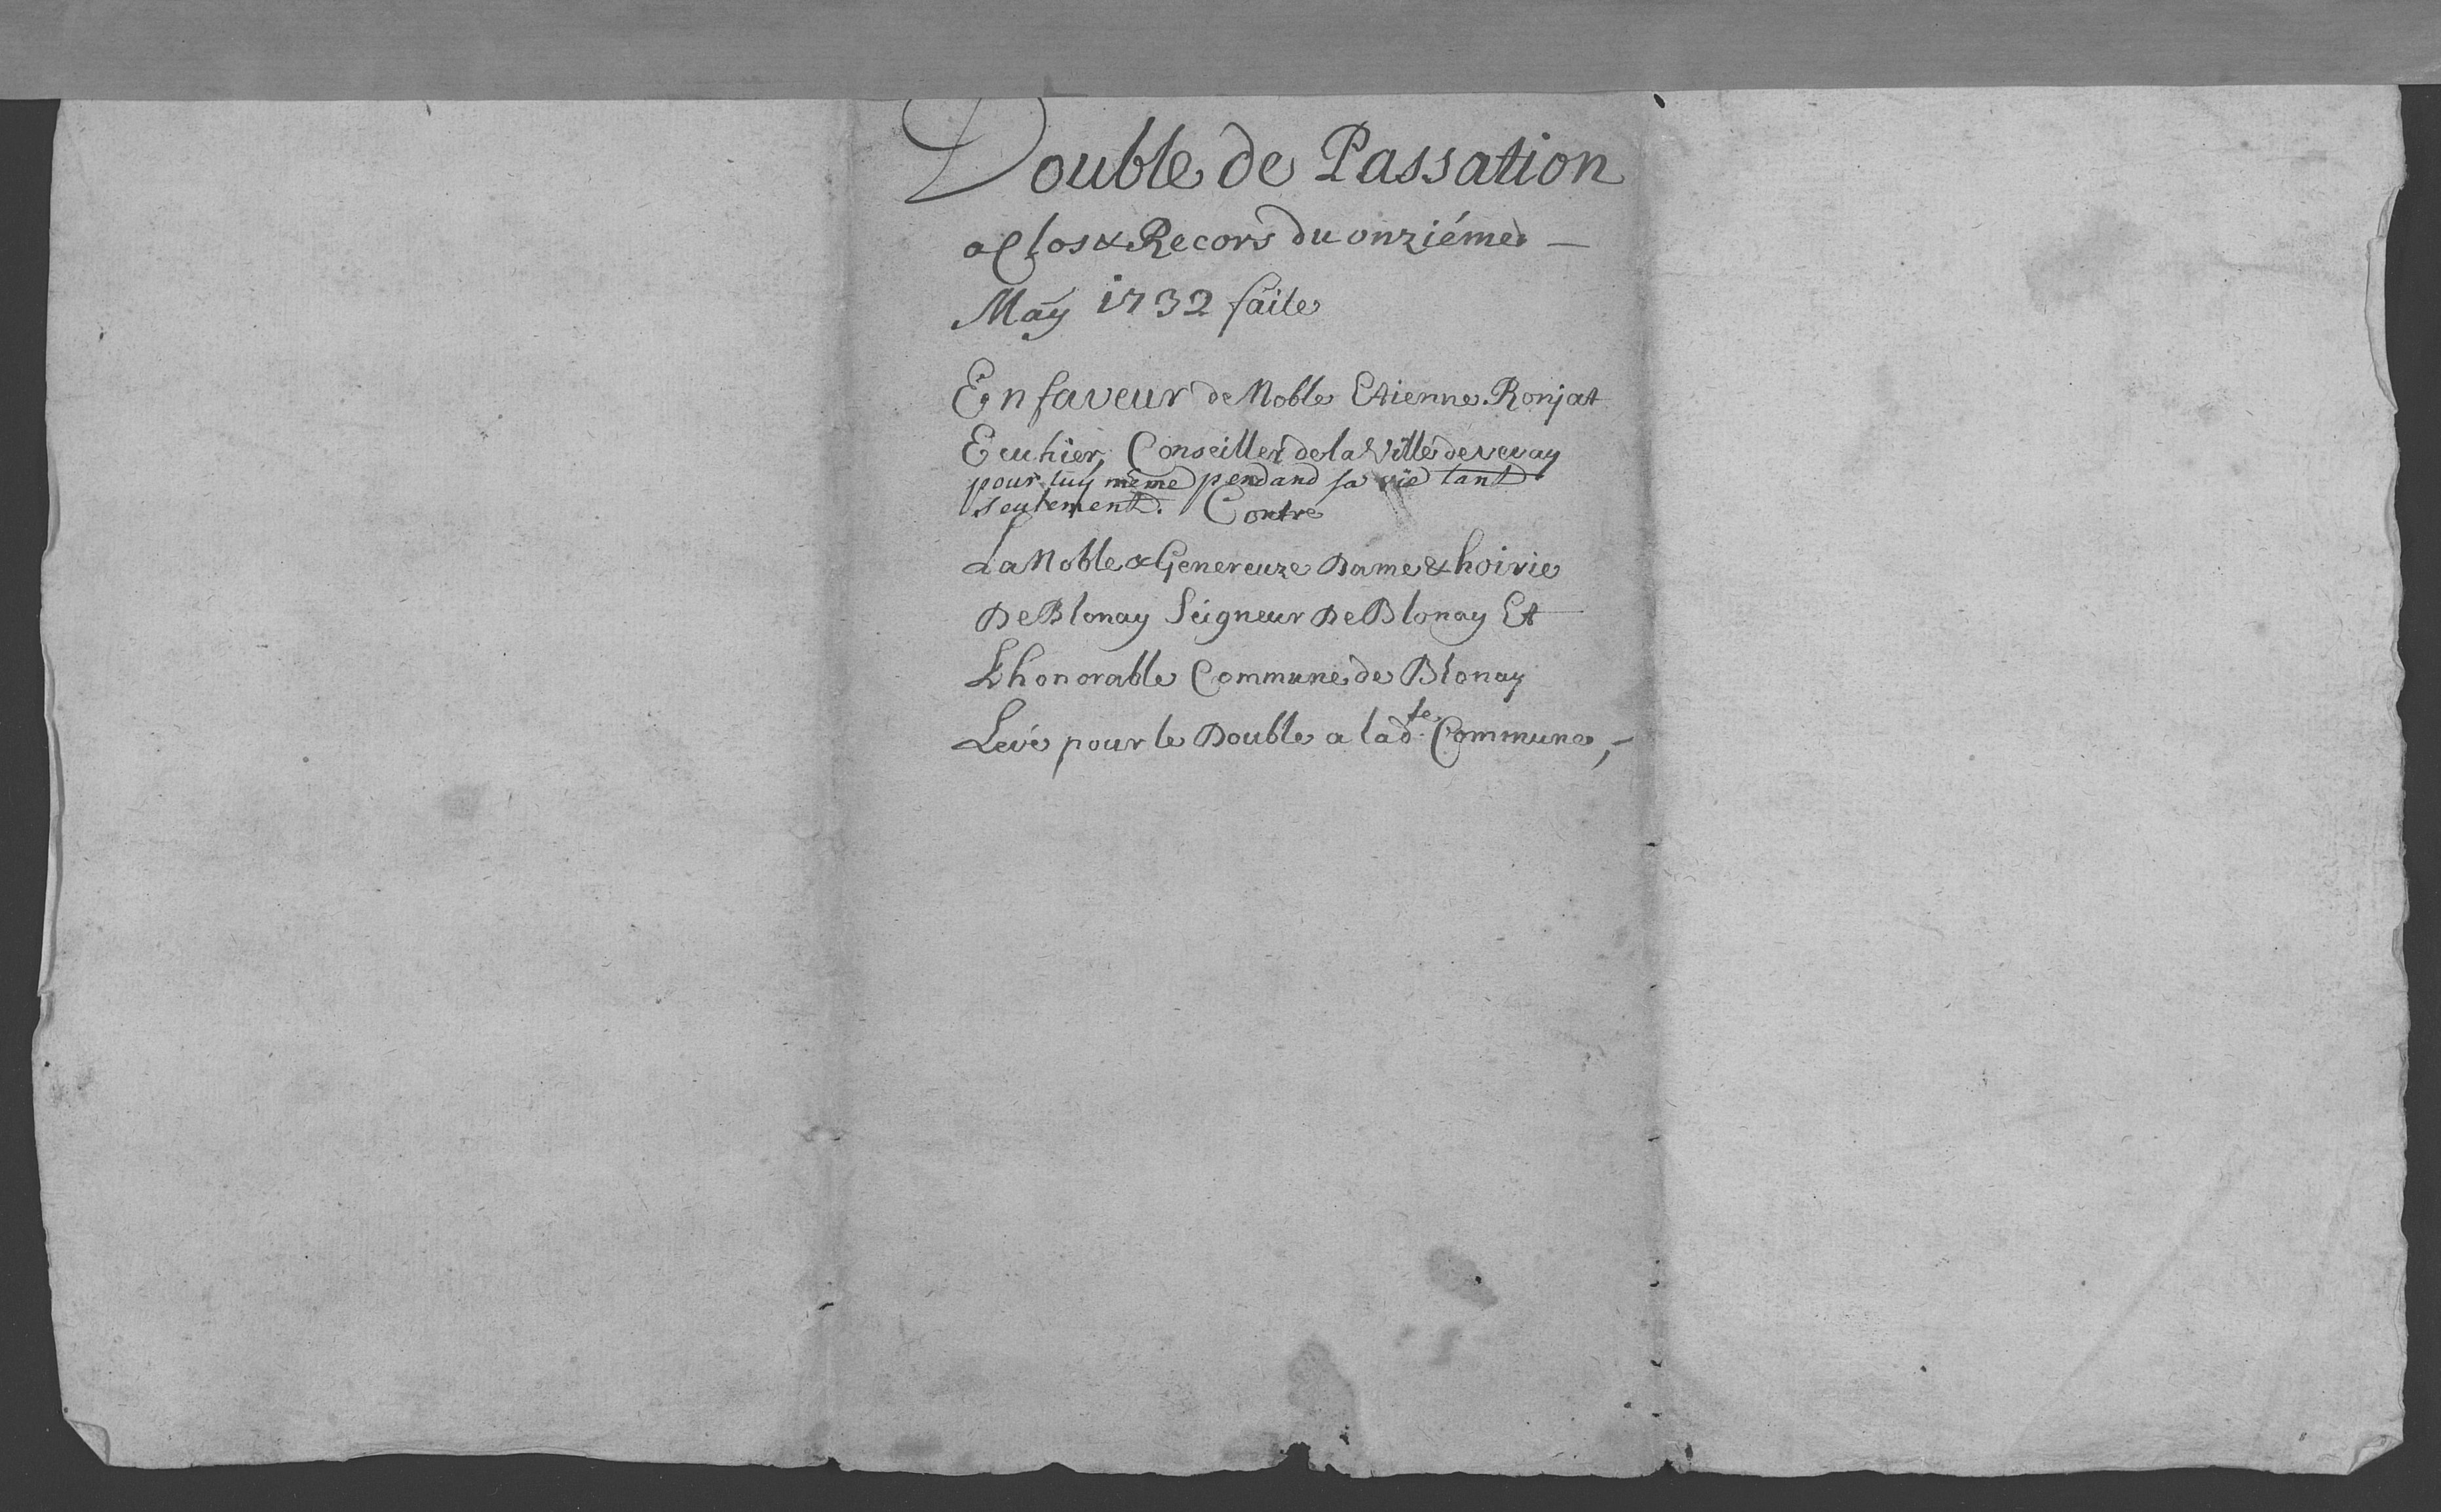 Double de Passation
a Clos & Recors du onziéme —
May 1732 faite
En faveur de Noble Etienne Ronjat
Ecuhier, Conseiller de la Ville de vevay
pour luy même pendand sa vie tant
seulement. Contre
La Noble & Genereuze Dame & hoirie
De Blonay Seigneur De Blonay Et
L'honorable Commune de Blonay
Levé pour le Double a lad.te Commune,-